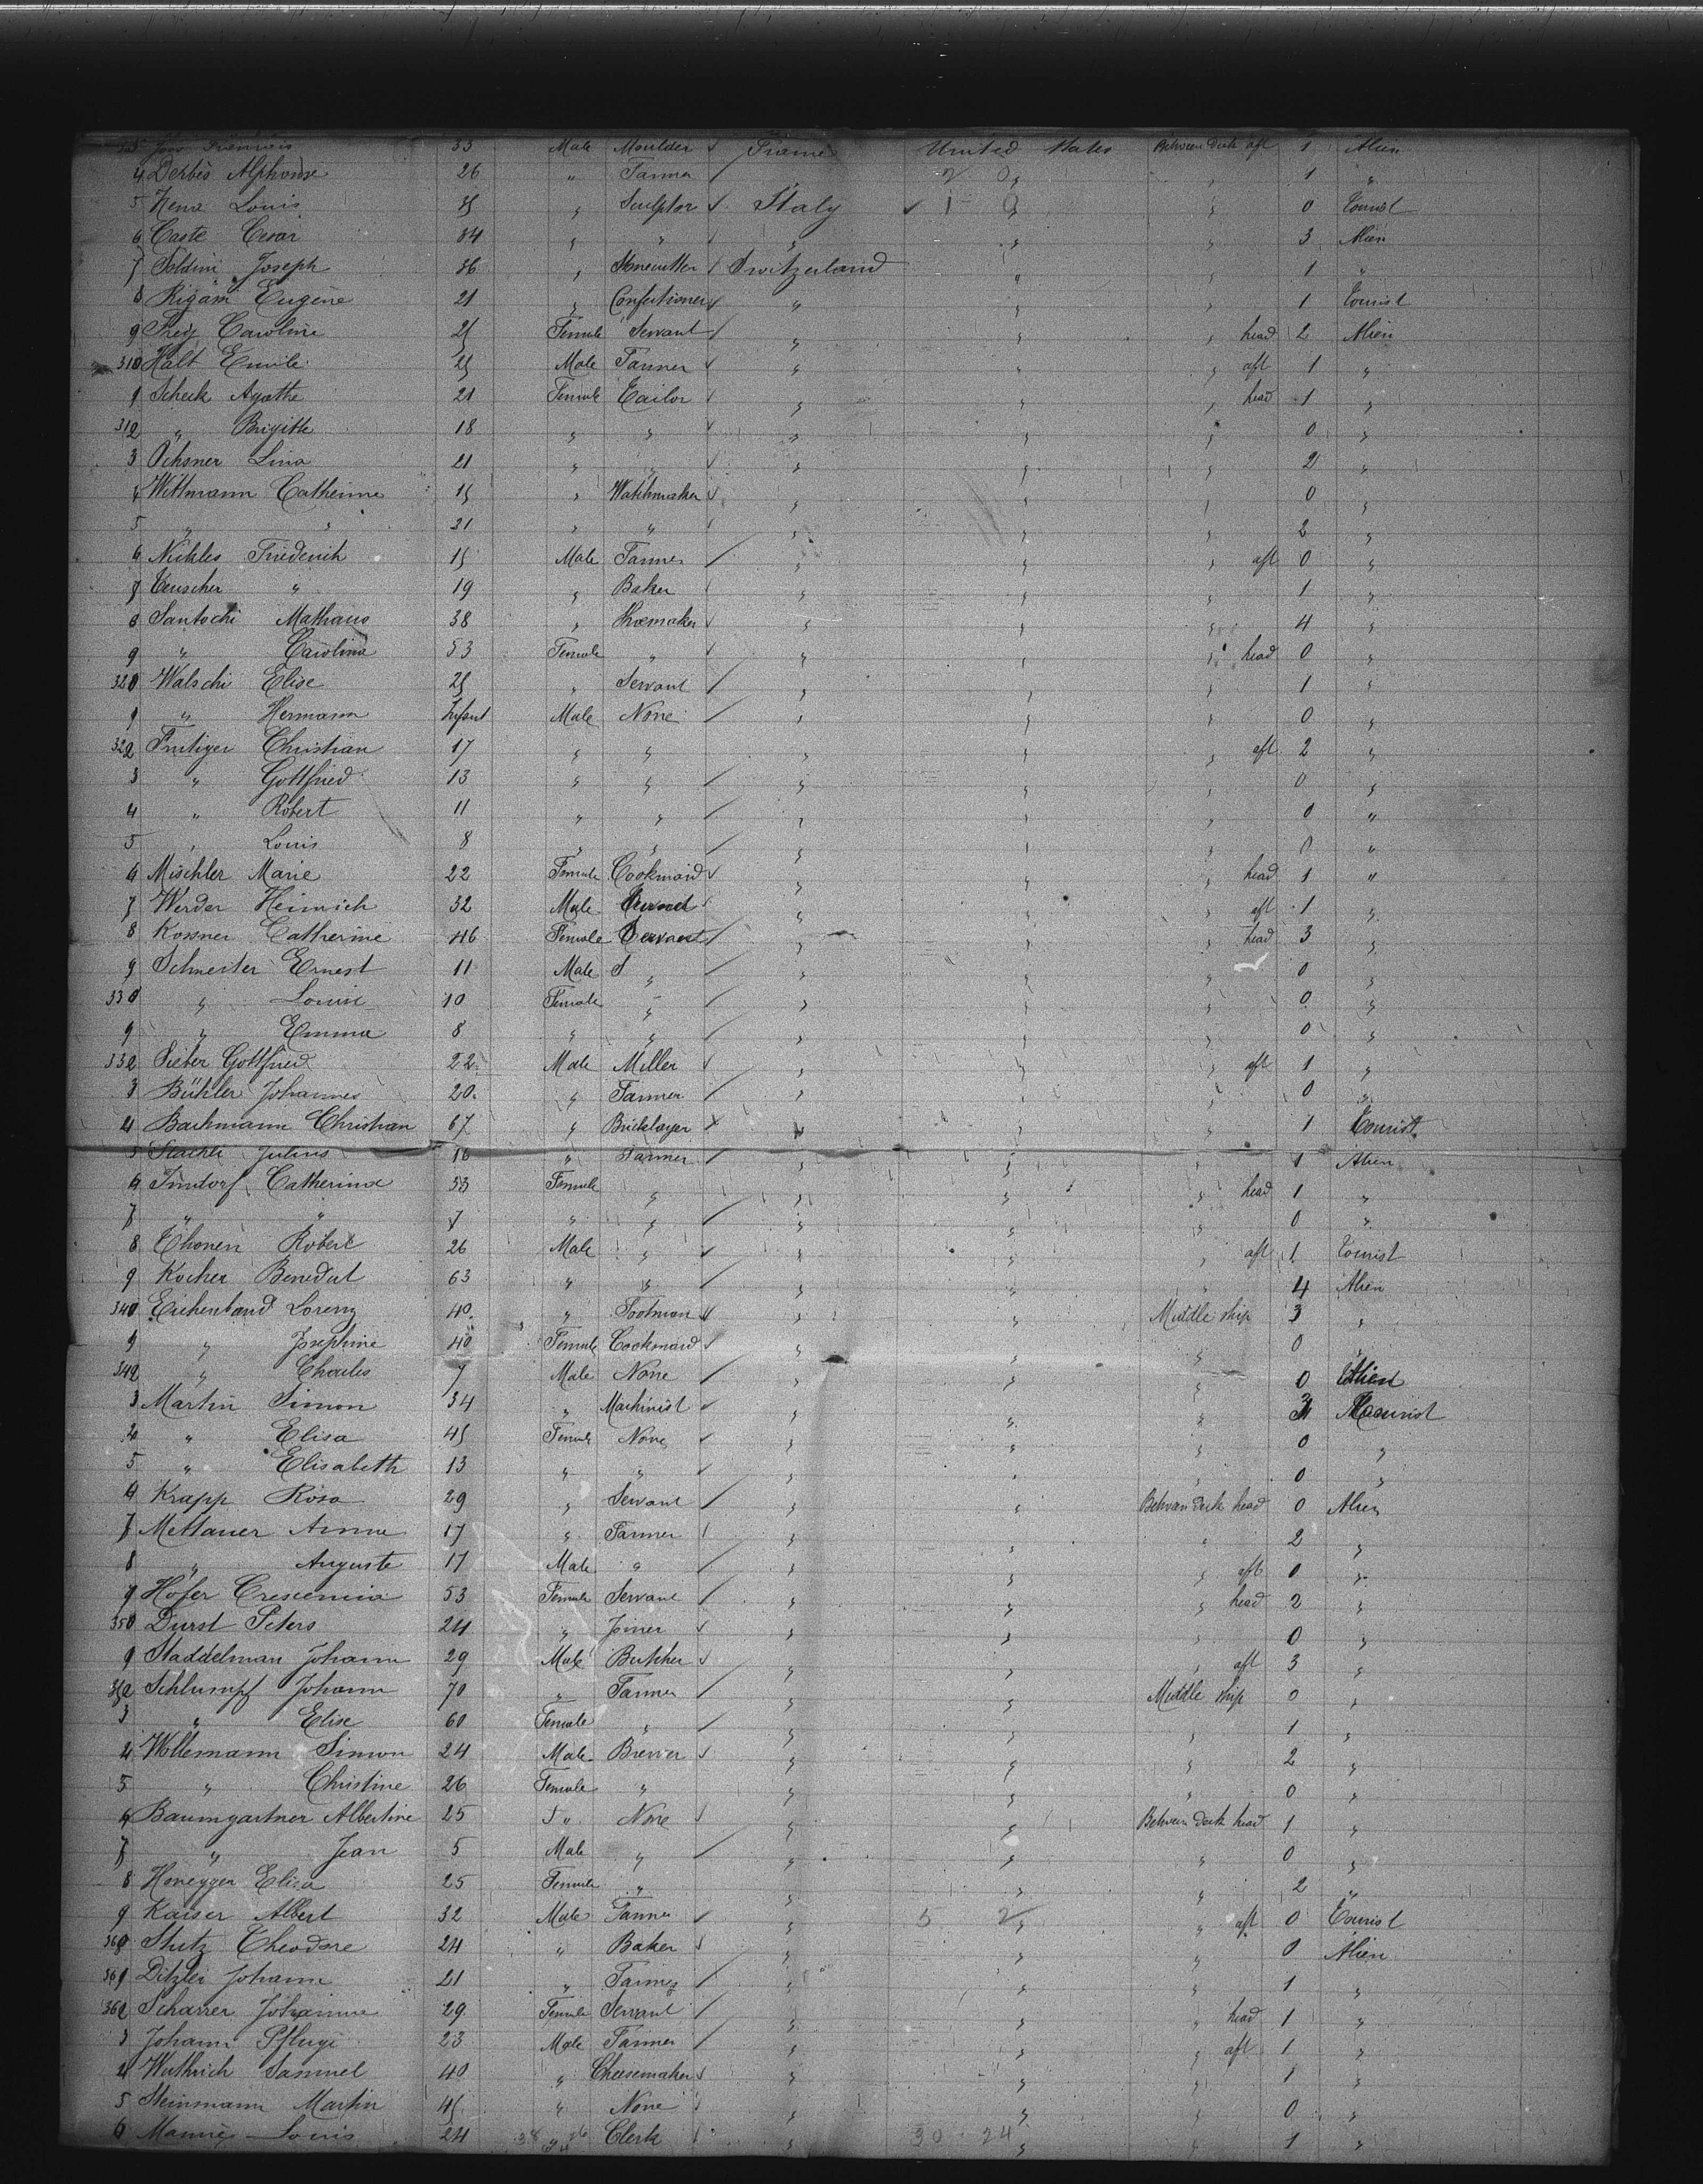 33 Male Moulder France United States Between Deck aft 1 Alien
4 Derbès Alphonse 26 " Farmer " " " 1 "
5 Louis 35 " Sculptor Italy " " 0 Tourist
6 Caste Cesar 34 " " " " " 3 Alien
7 Soldini Joseph 36 " Stonecutter Switzerland " " 1 "
8 Eugène 21 " Confectioner " " " 1 Tourist
9 Frey Caroline 25 Female Servant " " " head 2 Alien
310 Halt Emile 25 Male Farmer " " " aft 1 "
1 Scheck Agathe 21 Female Tailor " " " head 1 "
312 " Brigitte 18 " " " " " 0 "
3 Ochsner Lina 21 " " " " " 2 "
4 Wittmann Catherine 15 " Watchmaker " " " 0 "
5 " " 21 " " " " " 2 "
6 Nickles Friederich 15 Male Farmer " " " aft 0 "
7 Teuscher " 19 " Baker " " " 1 "
8 Santschi Mathaus 38 " Shoemaker " " " 4 "
9 " Carolina 53 Female " " " " head 0 "
320 Walschi Elise 25 " Servant " " " 1 "
1 " Hermann Infant Male None " " " 0 "
322 Frutiger Christian 17 " " " " " aft 2 "
3 " Gottfried 13 " " " " " 0 "
4 " Robert 11 " " " " " 0 "
5 " Louis 8 " " " " " 0 "
6 Mischler Marie 22 Female Cookmaid " " " head 1 "
7 Werder Heinrich 32 Male " " " aft 1 "
8 Kossner Catherine 46 Female Servant " " " head 3 "
9 Schneiter Ernest 11 Male " " " " 0 "
330 " Louise 10 Female " " " " 0 "
1 " Emma 8 " " " " " 0 "
332 Sieber Gottfried 22 Male Miller " " " aft 1 "
3 Bühler Johannes 20 " Farmer " " " 0 "
4 Bachmann Christian 67 " Bricklayer " " " 1 Tourist
5 Julius 16 " Farmer " " " 1 Alien
6 Catherina 53 Female " " " " head 1 "
7 " " 7 " " " " " 0 "
8 Thonen Robert 26 Male " " " " aft 1 Tourist
9 Kocher Benedict 63 " " " " " 4 Alien
340 Eichenband Lorenz 40 " Footman " " Middle ship 3 "
1 " Josephine 40 Female Cookmaid " " " 0 "
342 " Charles 7 Male None " " " 0 Alien
3 Martin Simon 34 " Machinist " " " 3 Tourist
4 " Elisa 45 Female None " " " 0 "
5 " Elisabeth 13 " " " " " 0 "
6 Krapp Rosa 29 " Servant " " Between Deck head 0 Alien
7 Mettauer Anna 17 " Farmer " " " 2 "
8 " Auguste 17 Male " " " " aft 0 "
9 Hofer Crescencia 53 Female Servant " " " head 2 "
350 Durst Peters 24 " Joiner " " " 0 "
1 Staddelman Johann 29 Male Butcher " " " aft 3 "
352 Schlumpf Johann 70 " Farmer " " Middle ship 0 "
3 " Elise 60 Female " " " " 1 "
4 Wollemann Simon 24 Male Brewer " " " 2 "
5 " Christine 26 Female " " " " 0 "
6 Baumgartner Albertine 25 " None " " Between Deck head 1 "
7 " Jean 5 Male " " " " 0 "
8 Honegger Elisa 25 Female " " " " 2 "
9 Kaiser Albert 32 Male Farmer " 5 2 " " aft 0 Tourist
360 Stutz Theodore 24 " Baker " " " 0 Alien
361 Ditzler Johann 21 " Farmer " " " 1 "
362 Scharrer Johanna 29 Female Servant " " " head 1 "
3 Johann Pflugi 23 Male Farmer " " " aft 1 "
4 Wuthrich Samuel 40 " Cheesemaker " " " 1 "
5 Steinmann Martin 45 " None " " " 0 "
6 Louis 24 " Clerk " 30 24 " " 1 "